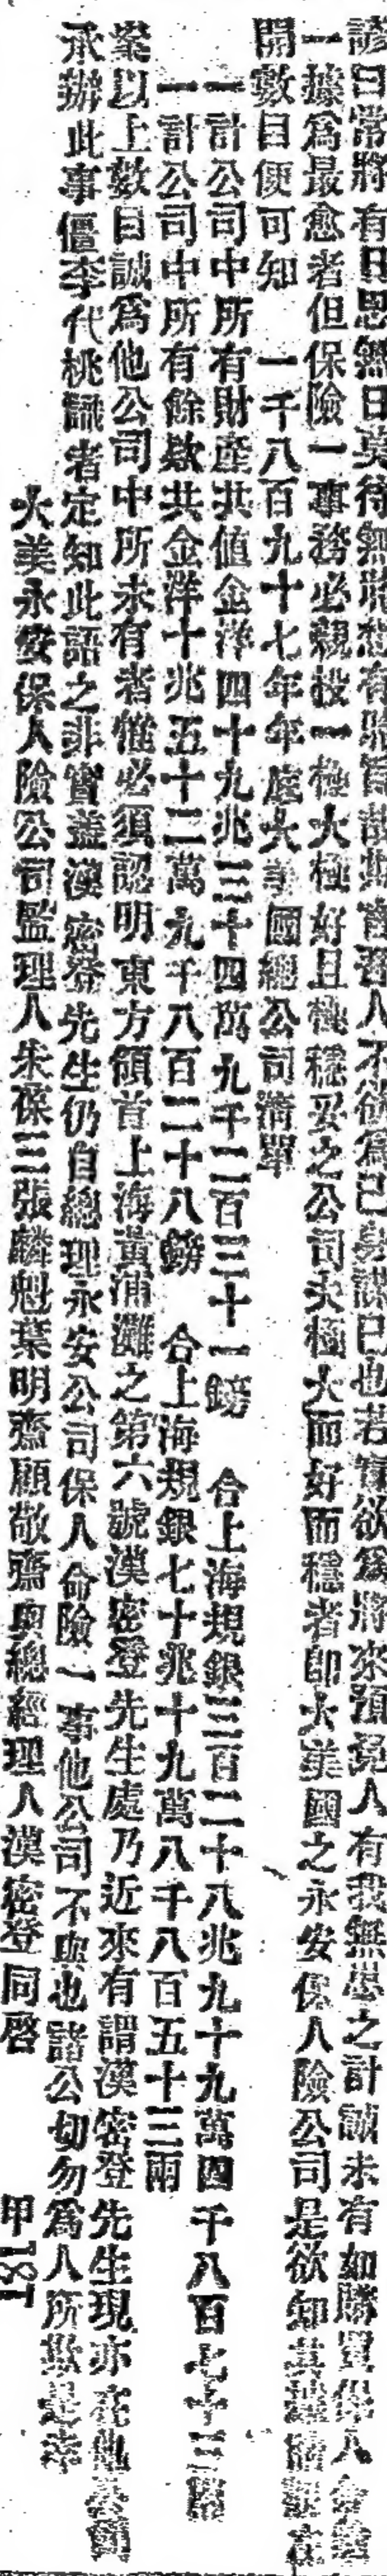 諺曰常將有日思無日莫待無時想有時旨哉斯言吾人不欲為己身謀已也若實欲為將來預免人有我無愁之計誠未有如購買保人命險
一據為最愈者但保險一事務必親投一極大極好且極穩妥之公司夫極大而好而穩者即大美國之永安保人險公司是欲知其確憑請觀左
開數目便可知　一千八百九十七年年底大美國總公司清單
一計公司中所有財產共值金洋四十九兆三十四萬九千二百三十一鎊　合上海規銀三百二十八兆九十九萬四千八百七十三兩
一計公司中所有餘款共金洋十兆五十二萬九千八百二十八鎊　合上海規銀七十兆十九萬八千八百五十三兩
案以上數目誠為他公司中所未有者惟必須認明東方領首上海黃浦灘之第六號漢密登先生處乃近來有謂漢密登先生現亦在他公司
承辦此事僵李代桃識者定知此語之非實蓋漢密登先生仍自總理永安公司保人命險一事他公司不與也諸公切勿為人所欺是幸
大美永安保人險公司監理人朱葆三張麟魁葉明齋顧敬齋與總經理人漢密登同啓　甲181